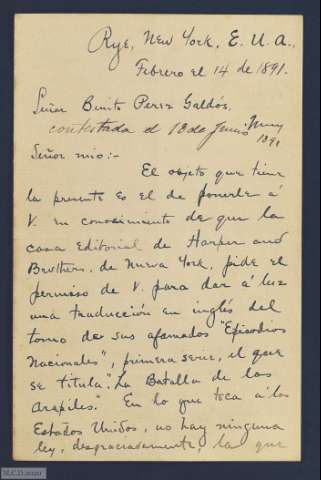 Rye, New York, E. U. A.,
Febrero el 14 de 1891.
Señor Benito Perez Galdós.
contestada el 18 de Junio
1891
Señor mio:-
El objeto que tiene
la presente es el de ponerle á
V. en conocimiento de que la
casa Editorial de Harper and
Brothers, de Nueva York, pide el
permiso de V. para dar á luz
una traducción en inglés del
tomo de sus afamados "Episodios
Nacionales", primera serie, el que
se titula, "La Batalla de los
Arapiles." En lo que toca á los
Estados Unidos, no hay ninguna
ley, desgraciadamente, la que